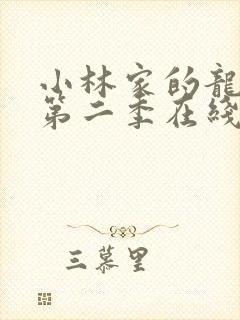 小林家的龍
第二季在綫
三慕里